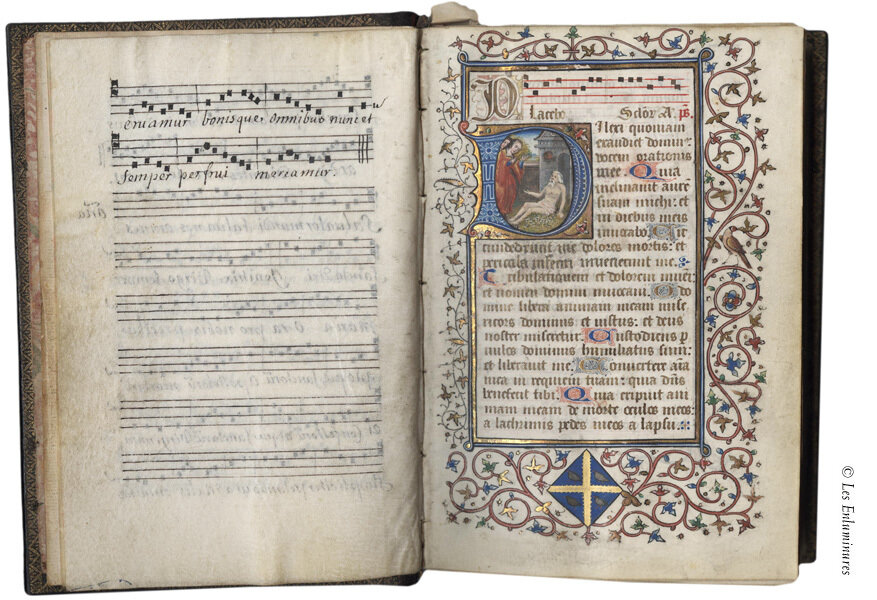 eruamur bonisque omnibus nunc et
semper perfrui meriamur.
Placebo Seclor. A. ps.
Dilexi quoniam
exaudiet domin
uocem orationis
mee Quia
inclinauit aure
suam michi: et
in diebus meis
inuocabo Cir
cumdederunt me dolores mortis: et
pericula inferni inuenerunt me.
Tribulationem et dolorem inueni:
et nomen domini inuocaui. O do
mine libera animam meam mise
ricors dominus et iustus: et deus
noster miseretur. Custodiens p
uulos dominus humiliatus sum:
et liberauit me. Conuertere aīa
mea in requiem tuam: quia dn̄s
benefecit tibi. Quia eripuit ani
mam meam de morte oculos meos:
a lachrimis pedes meos a lapsu.
© Les Enluminures